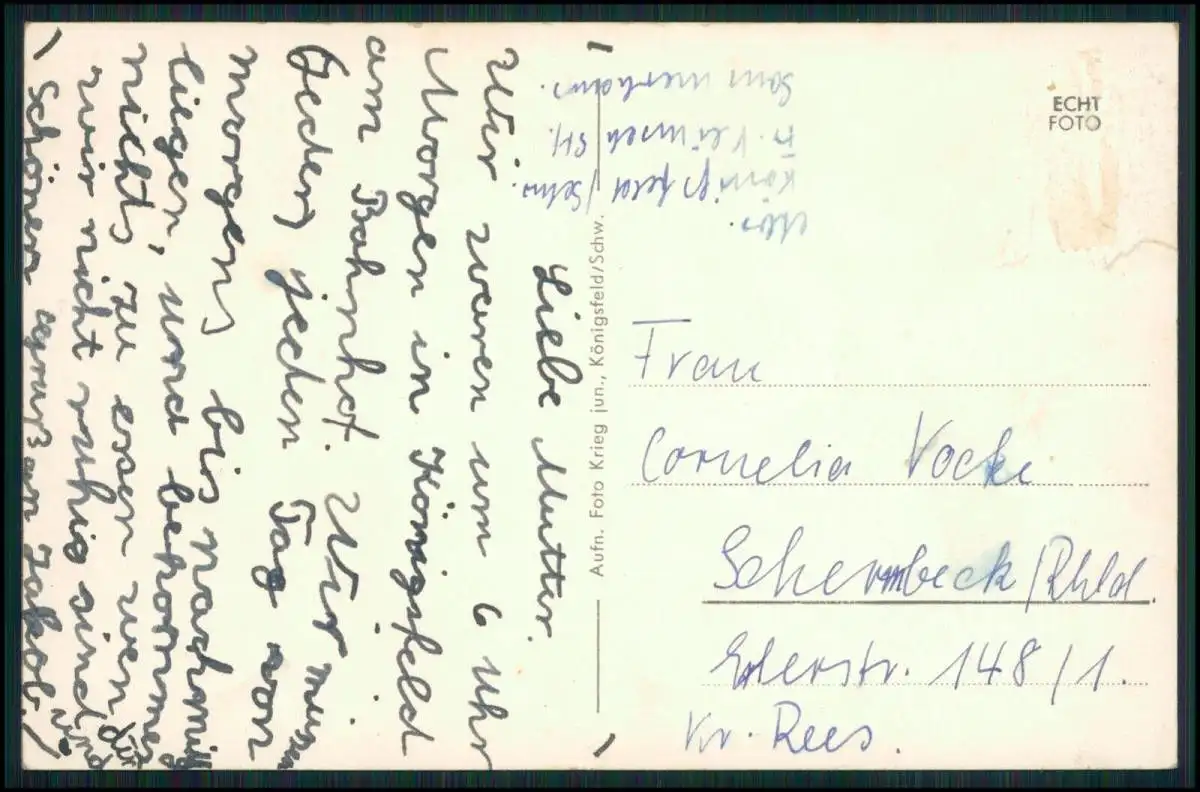 Liebe Mutter.
Wir waren um 6 Uhr
Morgen in Königsfeld
am Bahnhof. Wir müssen
Jeden jeden Tag von
morgens bis nachmitt
liegen, und bekommen
nichts zu essen wen
wir nicht ruhig sind
Schönen gruß an Jakob
Aufn. Foto Krieg jun., Königsfeld/Schw.
Königsfeld/Schw.
ECHT
FOTO
Frau
Cornelia Vocke
Schermbeck/Rhld.
148/1.
Kr. Rees.